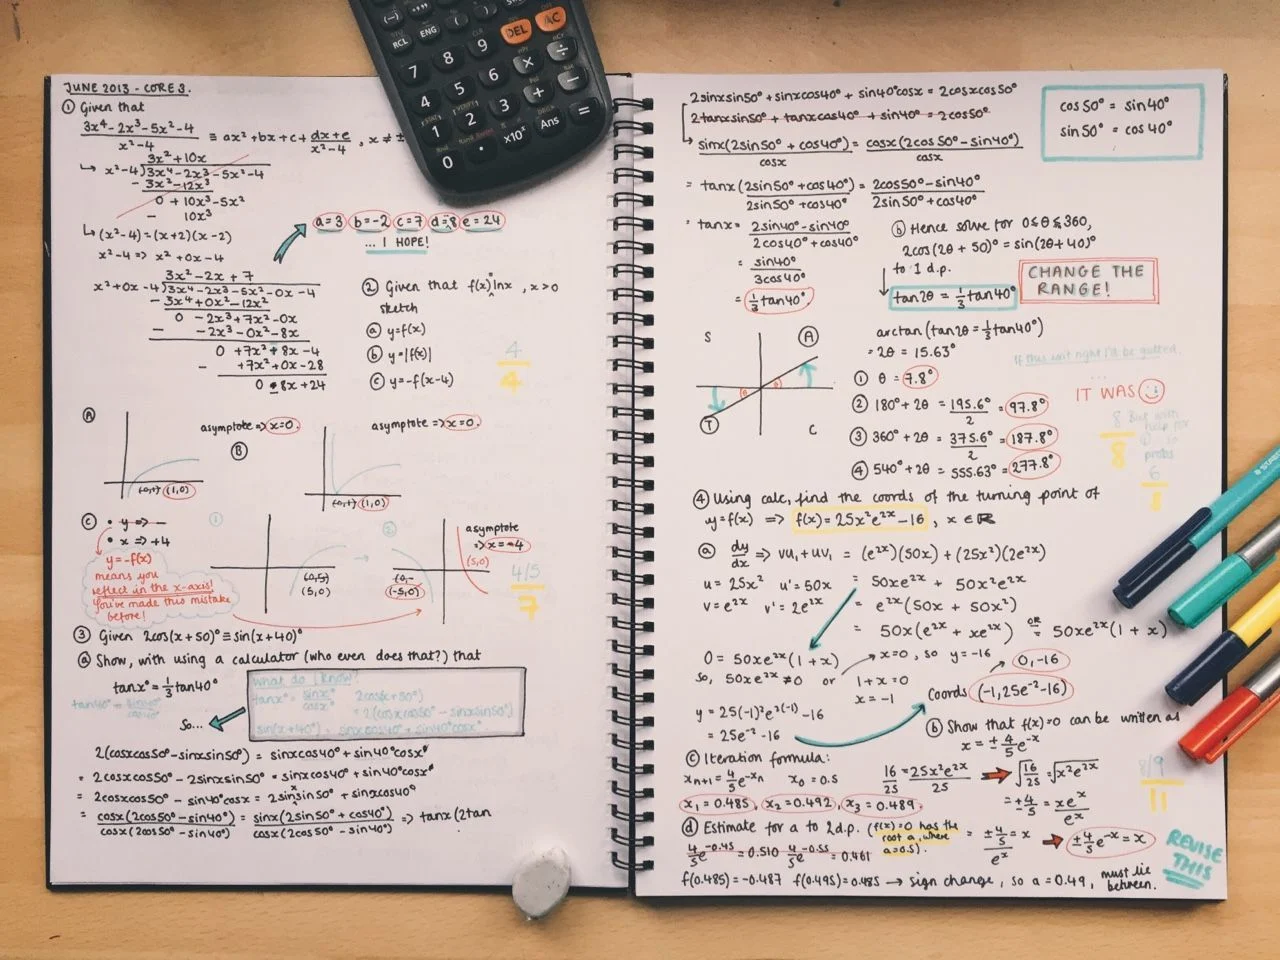 JUNE 2013 - CORE 3.
① Given that
3x⁴-2x³-5x²-4 / x²-4 ≡ ax²+bx+c+ dx+e / x²-4 , x ≠ ±
3x²+10x
↳ x²-4)3x⁴-2x³-5x²-4
- 3x²-12x³
0 + 10x³-5x²
- 10x³
a=3 b=-2 c=7 d=8 e=24
... I HOPE!
↳(x²-4)=(x+2)(x-2)
x²-4 => x²+0x-4
3x²-2x+7
x²+0x-4)3x⁴-2x³-5x²-0x-4
- 3x⁴+0x³-12x²
0 -2x³+7x²-0x
- -2x³-0x²-8x
0 +7x²+8x-4
- +7x²+0x-28
0 8x+24
② Given that f(x) lnx, x>0
sketch
ⓐ y=f(x)
ⓑ y=|f(x)|
ⓒ y=-f(x-4)
4/4
Ⓐ
asymptote => x=0.
(1,0)
Ⓑ
asymptote => x=0.
(1,0)
ⓒ • y => -
• x => +4
y=-f(x)
means you
reflect in the x-axis!
You've made this mistake
before!
①
(5,0)
②
(-5,0)
asymptote
=> x=-4
(5,0)
4/5
7
③ Given 2cos(x+50)° ≡ sin(x+40)°
ⓐ Show, with using a calculator (who even does that?) that
tanx° = ⅓tan40°
tan40° = sin40°/cos40°
So...
What do I know?
tanx° = sinx°/cosx° 2cos(x+50°)
= 2(cosxcos50°-sinxsin50°)
sin(x+40°) = sinxcos40°+sin40°cosx°
2(cosxcos50°-sinxsin50°) = sinxcos40°+sin40°cosx°
= 2cosxcos50° - 2sinxsin50° = sinxcos40°+sin40°cosx°
= 2cosxcos50° - sin40°cosx = 2sinxsin50° + sinxcos40°
= cosx(2cos50°-sin40°) / cosx(2cos50°-sin40°) = sinx(2sin50°+cos40°) / cosx(2cos50°-sin40°) => tanx(2tan
2sinxsin50°+sinxcos40°+sin40°cosx = 2cosxcos50°
2tanxsin50°+tanxcos40°+sin40° = 2cos50°
sinx(2sin50°+cos40°) / cosx = cosx(2cos50°-sin40°) / cosx
cos50° = sin40°
sin50° = cos40°
= tanx(2sin50°+cos40°) / 2sin50°+cos40° = 2cos50°-sin40° / 2sin50°+cos40°
= tanx = 2sin40°-sin40° / 2cos40°+cos40°
= sin40° / 3cos40°
= ⅓tan40°
ⓑ Hence solve for 0≤θ≤360,
2cos(2θ+50)° = sin(2θ+40)°
to 1 d.p.
tan2θ = ⅓tan40°
CHANGE THE
RANGE!
S
A
T
C
arctan(tan2θ=⅓tan40°)
= 2θ = 15.63°
① θ = 7.8°
② 180°+2θ = 195.6°/2 = 97.8°
③ 360°+2θ = 375.6°/2 = 187.8°
④ 540°+2θ = 555.63° = 277.8°
If this isn't right I'll be gutted.
...
IT WAS
8/8
But with
help for
so
probs
6
④ Using calc, find the coords of the turning point of
y=f(x) => f(x)=25x²e²ˣ-16, x∈ℝ
ⓐ dy/dx => vu₁+uv₁ = (e²ˣ)(50x)+(25x²)(2e²ˣ)
u=25x² u'=50x = 50xe²ˣ + 50x²e²ˣ
v=e²ˣ v'=2e²ˣ = e²ˣ(50x + 50x²)
= 50x(e²ˣ+xe²ˣ) OR = 50xe²ˣ(1+x)
0=50xe²ˣ(1+x) x=0, so y=-16 0,-16
so, 50xe²ˣ≠0 or 1+x=0
x=-1
Coords (-1,25e⁻²-16)
y=25(-1)²e²⁽⁻¹⁾-16
= 25e⁻²-16
ⓑ Show that f(x)=0 can be written as
x=±4/5e⁻ˣ
16/25 = 25x²e²ˣ/25 √16/25=√x²e²ˣ
=±4/5 = xeˣ/eˣ
= ±4/5 / eˣ = x
±4/5e⁻ˣ=x
8/9
11
ⓒ Iteration formula:
xₙ₊₁=4/5e⁻ˣₙ x₀=0.5
x₁=0.485, x₂=0.492, x₃=0.489.
ⓓ Estimate for a to 2d.p. (f(x)=0 has the
root a, where
a=0.5).
4/5e⁻⁰·⁴⁵=0.510 4/5e⁻⁰·⁵⁵=0.461
f(0.485)=-0.487 f(0.495)=0.485 → sign change, so a=0.49, must lie
between.
REVISE
THIS
RCL
ENG
(
)
DEL
AC
7
8
9
×
÷
4
5
6
+
−
1
2
3
0
·
×10ˣ
Ans
=
STABILO